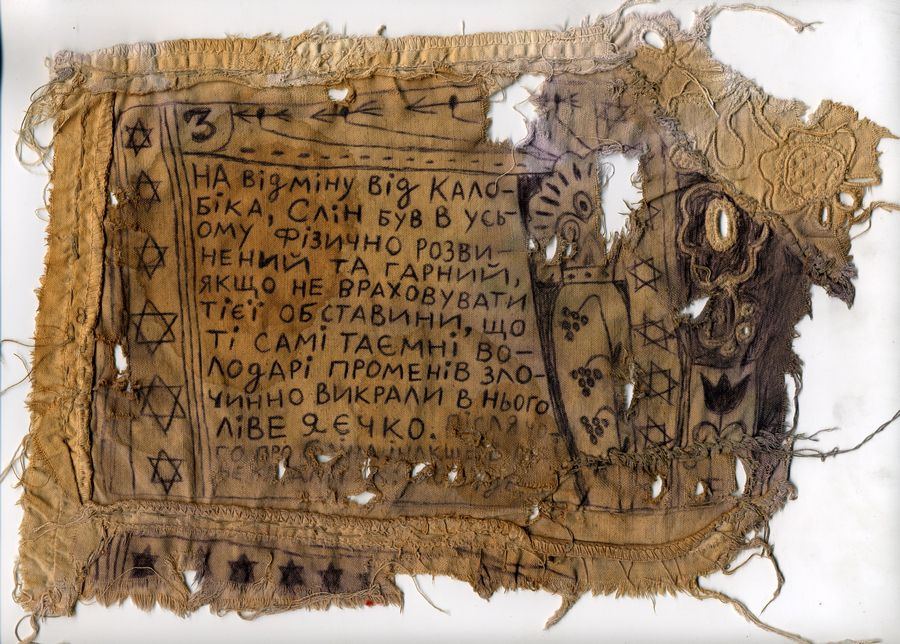 3
НА ВІДМІНУ ВІД КАЛО-
БІКА, СЛІН БУВ В УСЬ-
ОМУ ФІЗИЧНО РОЗВИ-
НЕНИЙ ТА ГАРНИЙ,
ЯКЩО НЕ ВРАХОВУВАТИ
ТІЄЇ ОБСТАВИНИ, ЩО
ТІ САМІ ТАЄМНІ ВО-
ЛОДАРІ ПРОМЕНІВ ЗЛО-
ЧИННО ВИКРАЛИ В НЬОГО
ЛІВЕ ЯЄЧКО.